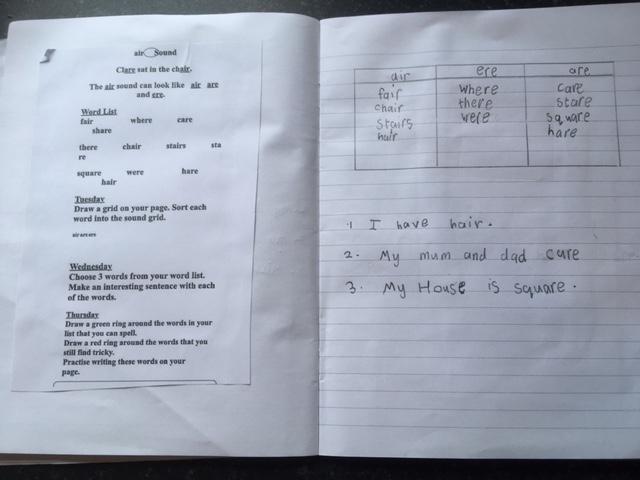 air Sound
Clare sat in the chair.
The air sound can look like air are
and ere.
Word List
fair where care
share
there chair stairs sta
re
square were hare
hair
Tuesday
Draw a grid on your page. Sort each
word into the sound grid.
air are ere
Wednesday
Choose 3 words from your word list.
Make an interesting sentence with each
of the words.
Thursday
Draw a green ring around the words in your
list that you can spell.
Draw a red ring around the words that you
still find tricky.
Practise writing these words on your
page.
air ere are
fair where care
chair there stare
stairs were square
hair hare
1 I have hair.
2. My mum and dad care
3. My House is square.